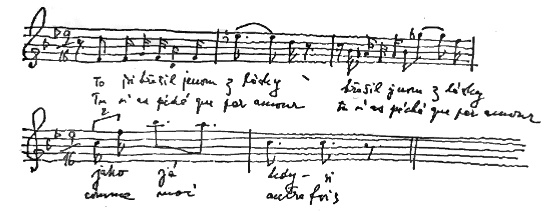 9
16
To jsi hřešil jenom z lásky hřešil jenom z lásky
Tu n'as péché que par amour tu n'as péché que par amour
9
16
2
jako já tedy - si
comme moi autrefois